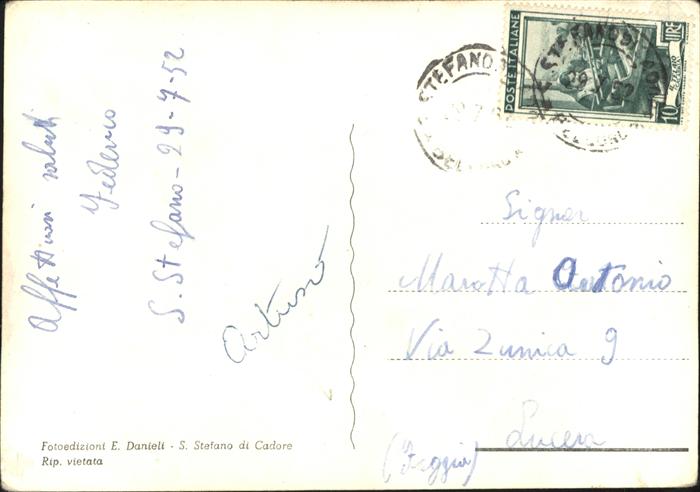 Affettuosi saluti
Federico
S. Stefano - 29-7-52
Arturo
POSTE ITALIANE
LIRE
10
Signor
Marotta Antonio
Via Zunica 9
Lucera
(Foggia)
Fotoedizioni E. Danieli - S. Stefano di Cadore
Rip. vietata